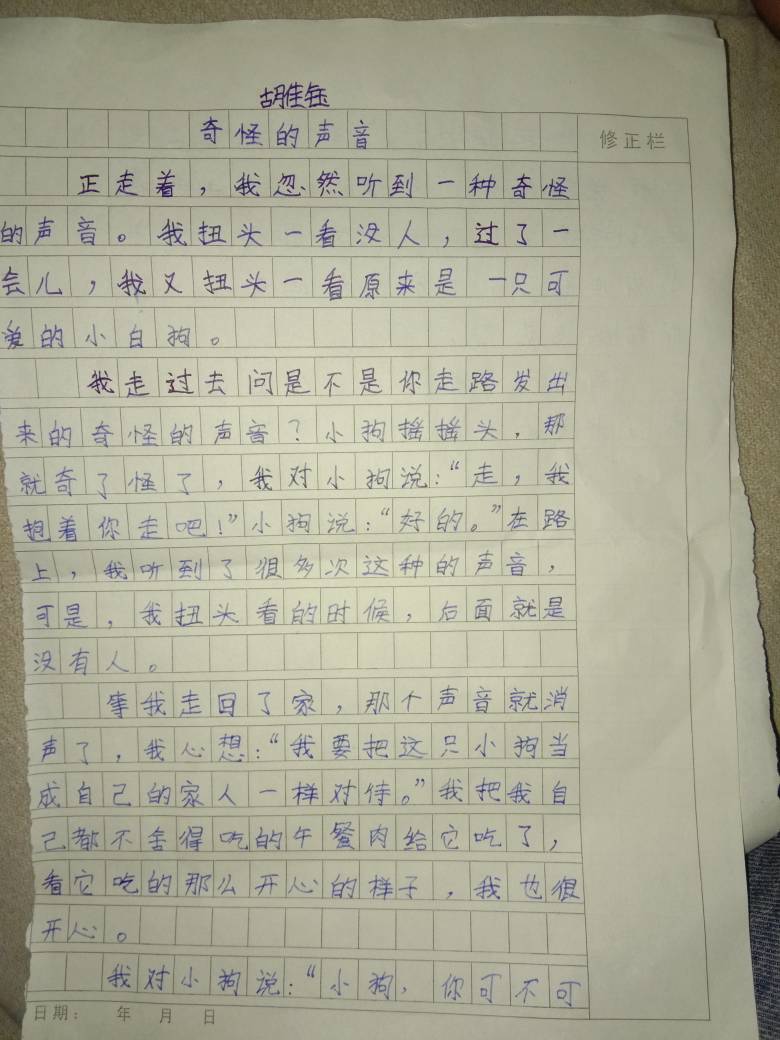 胡佳钰
奇怪的声音
修正栏
正走着，我忽然听到一种奇怪
的声音。我扭头一看没人，过了一
会儿，我又扭头一看原来是一只可
爱的小白狗。
我走过去问是不是你走路发出
来的奇怪的声音？小狗摇摇头，那
就奇了怪了，我对小狗说：“走，我
抱着你走吧！”小狗说：“好的。”在路
上，我听到了很多次这种的声音，
可是，我扭头看的时候，后面就是
没有人。
等我走回了家，那个声音就消
声了，我心想：“我要把这只小狗当
成自己的家人一样对待。”我把我自
己都不舍得吃的午餐肉给它吃了，
看它吃的那么开心的样子，我也很
开心。
我对小狗说：“小狗，你可不可
日期： 年 月 日